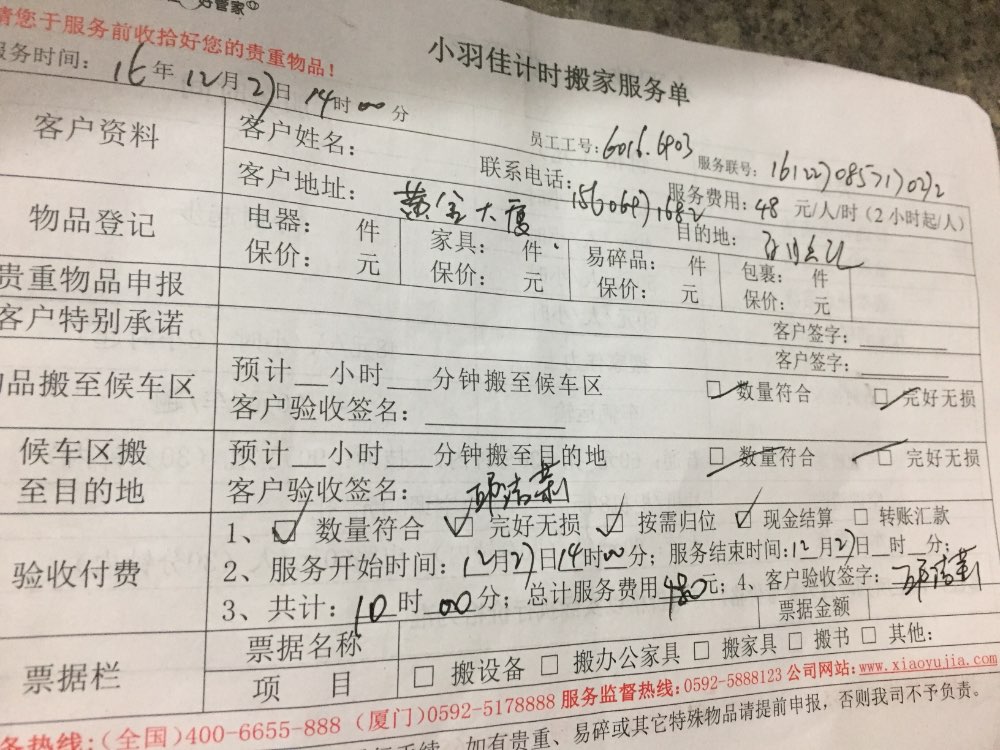 好管家
请您于服务前收拾好您的贵重物品！
小羽佳计时搬家服务单
服务时间：16年12月27日14时00分
员工工号：6016.6903 服务联号：
客户资料 客户姓名： 联系电话： 服务费用：48元/人/时（2小时起/人）
客户地址：黄金大厦 目的地：
物品登记 电器： 件 家具： 件 易碎品： 件 包裹： 件
保价： 元 保价： 元 保价： 元 保价： 元
贵重物品申报 客户签字：
客户特别承诺 客户签字：
物品搬至候车区 预计__小时___分钟搬至候车区 数量符合 完好无损
客户验收签名：
候车区搬至目的地 预计__小时___分钟搬至目的地 数量符合 完好无损
客户验收签名：
验收付费 1、☑ 数量符合 ☑ 完好无损 ☑ 按需归位 ☑ 现金结算 □ 转账汇款
2、服务开始时间：12月27日14时00分；服务结束时间：12月27日__时__分；
3、共计：10时00分；总计服务费用480元；4、客户验收签字：
票据栏 票据名称 票据金额
项 目 □ 搬设备 □ 搬办公家具 □ 搬家具 □ 搬书 □ 其他：
服务热线：(全国)400-6655-888 (厦门)0592-5178888 服务监督热线：0592-5888123 公司网站：www.xiaoyujia.com
如有贵重、易碎或其它特殊物品请提前申报，否则我司不予负责。